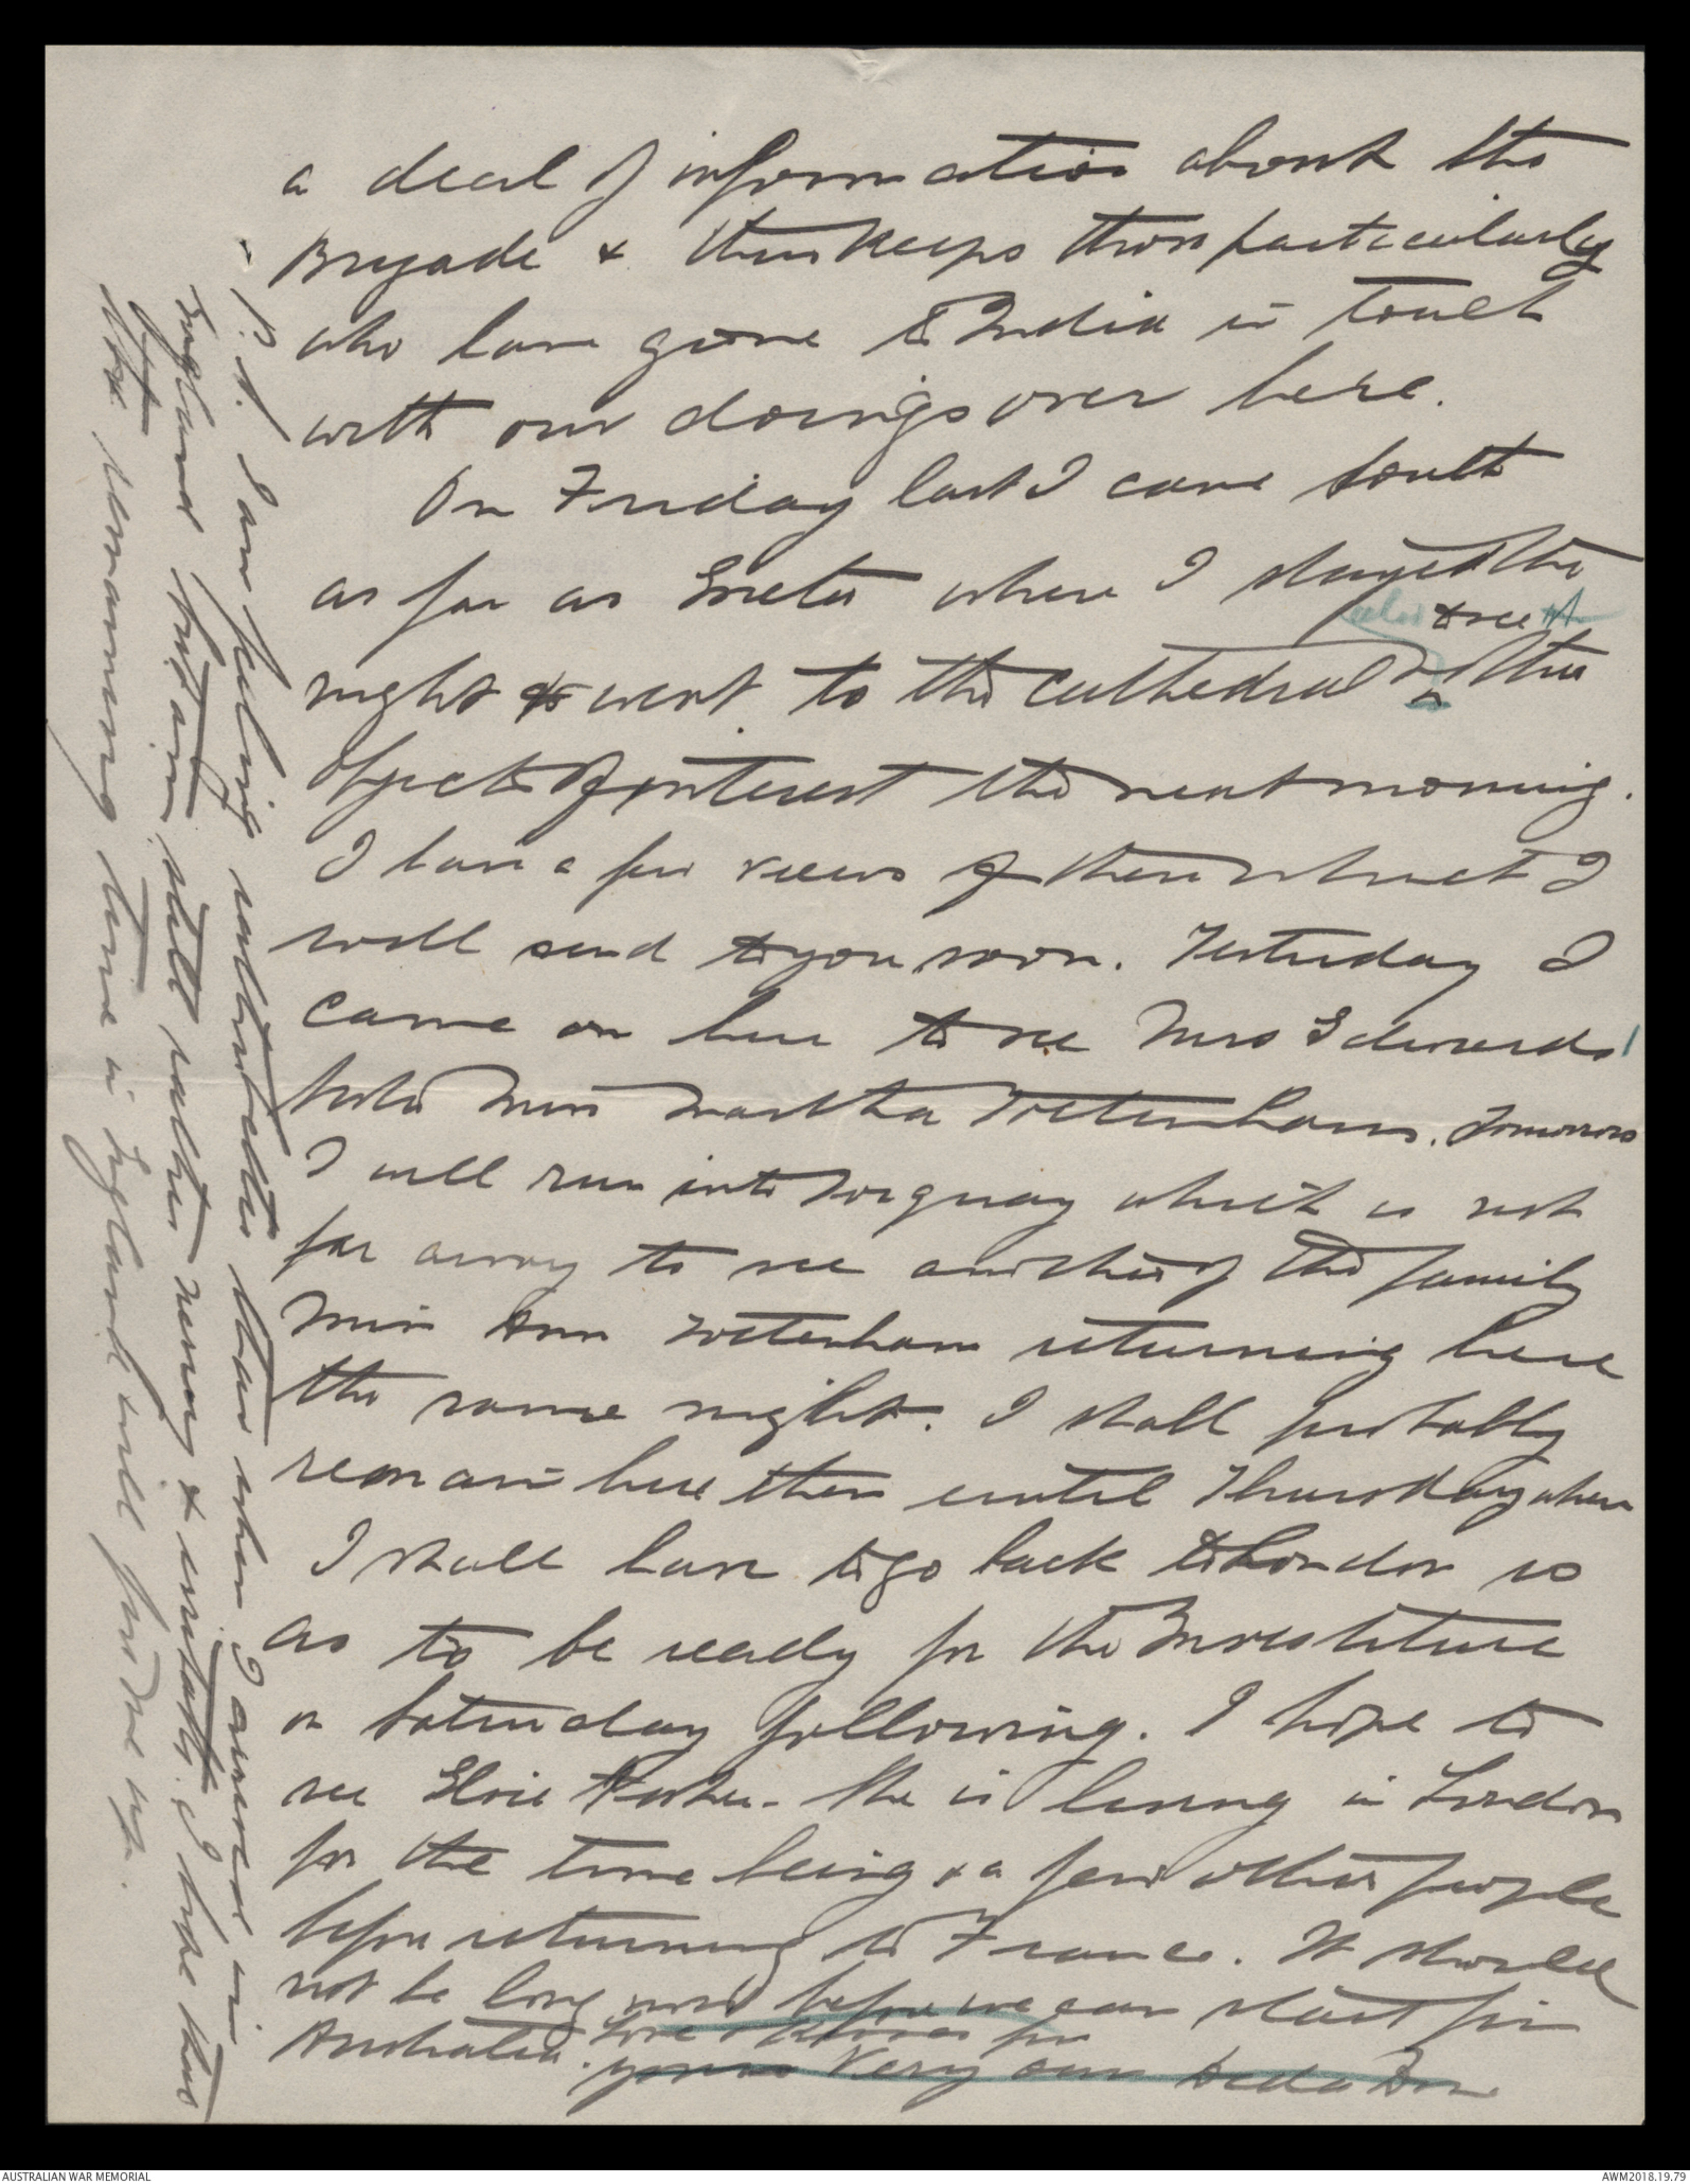 a deal of information about the
Brigade & thus keeps those particularly
who have gone to India in touch
with our doings over here.
On Friday last I came south
as far as Exeter where I stayed the
to see
night & went to the Cathedral & other
objects of interest the next morning.
I have a few views of these which I
will send to you soon. Yesterday I
came on here to see Mrs Edwards
Miss Martha Tottenham. Tomorrow
I will run into Torquay which is not
far away to see another of the family
Miss Ann Tottenham returning here
the same night. I shall probably
remain here then until Thursday when
I shall have to go back to London so
as to be ready for the Investiture
on Saturday following. I hope to
see Elsie. She is living in London
for the time being & a few other people
before returning to France. It should
not be long now before we can start for
Australia. Love & kisses from
yours Very own Dada
P.S. I am feeling much better than when I arrived in
England but am still rather nervy & irritable. I hope that
the remaining time in England will fix me up.
AUSTRALIAN WAR MEMORIAL
AWM2018.19.79